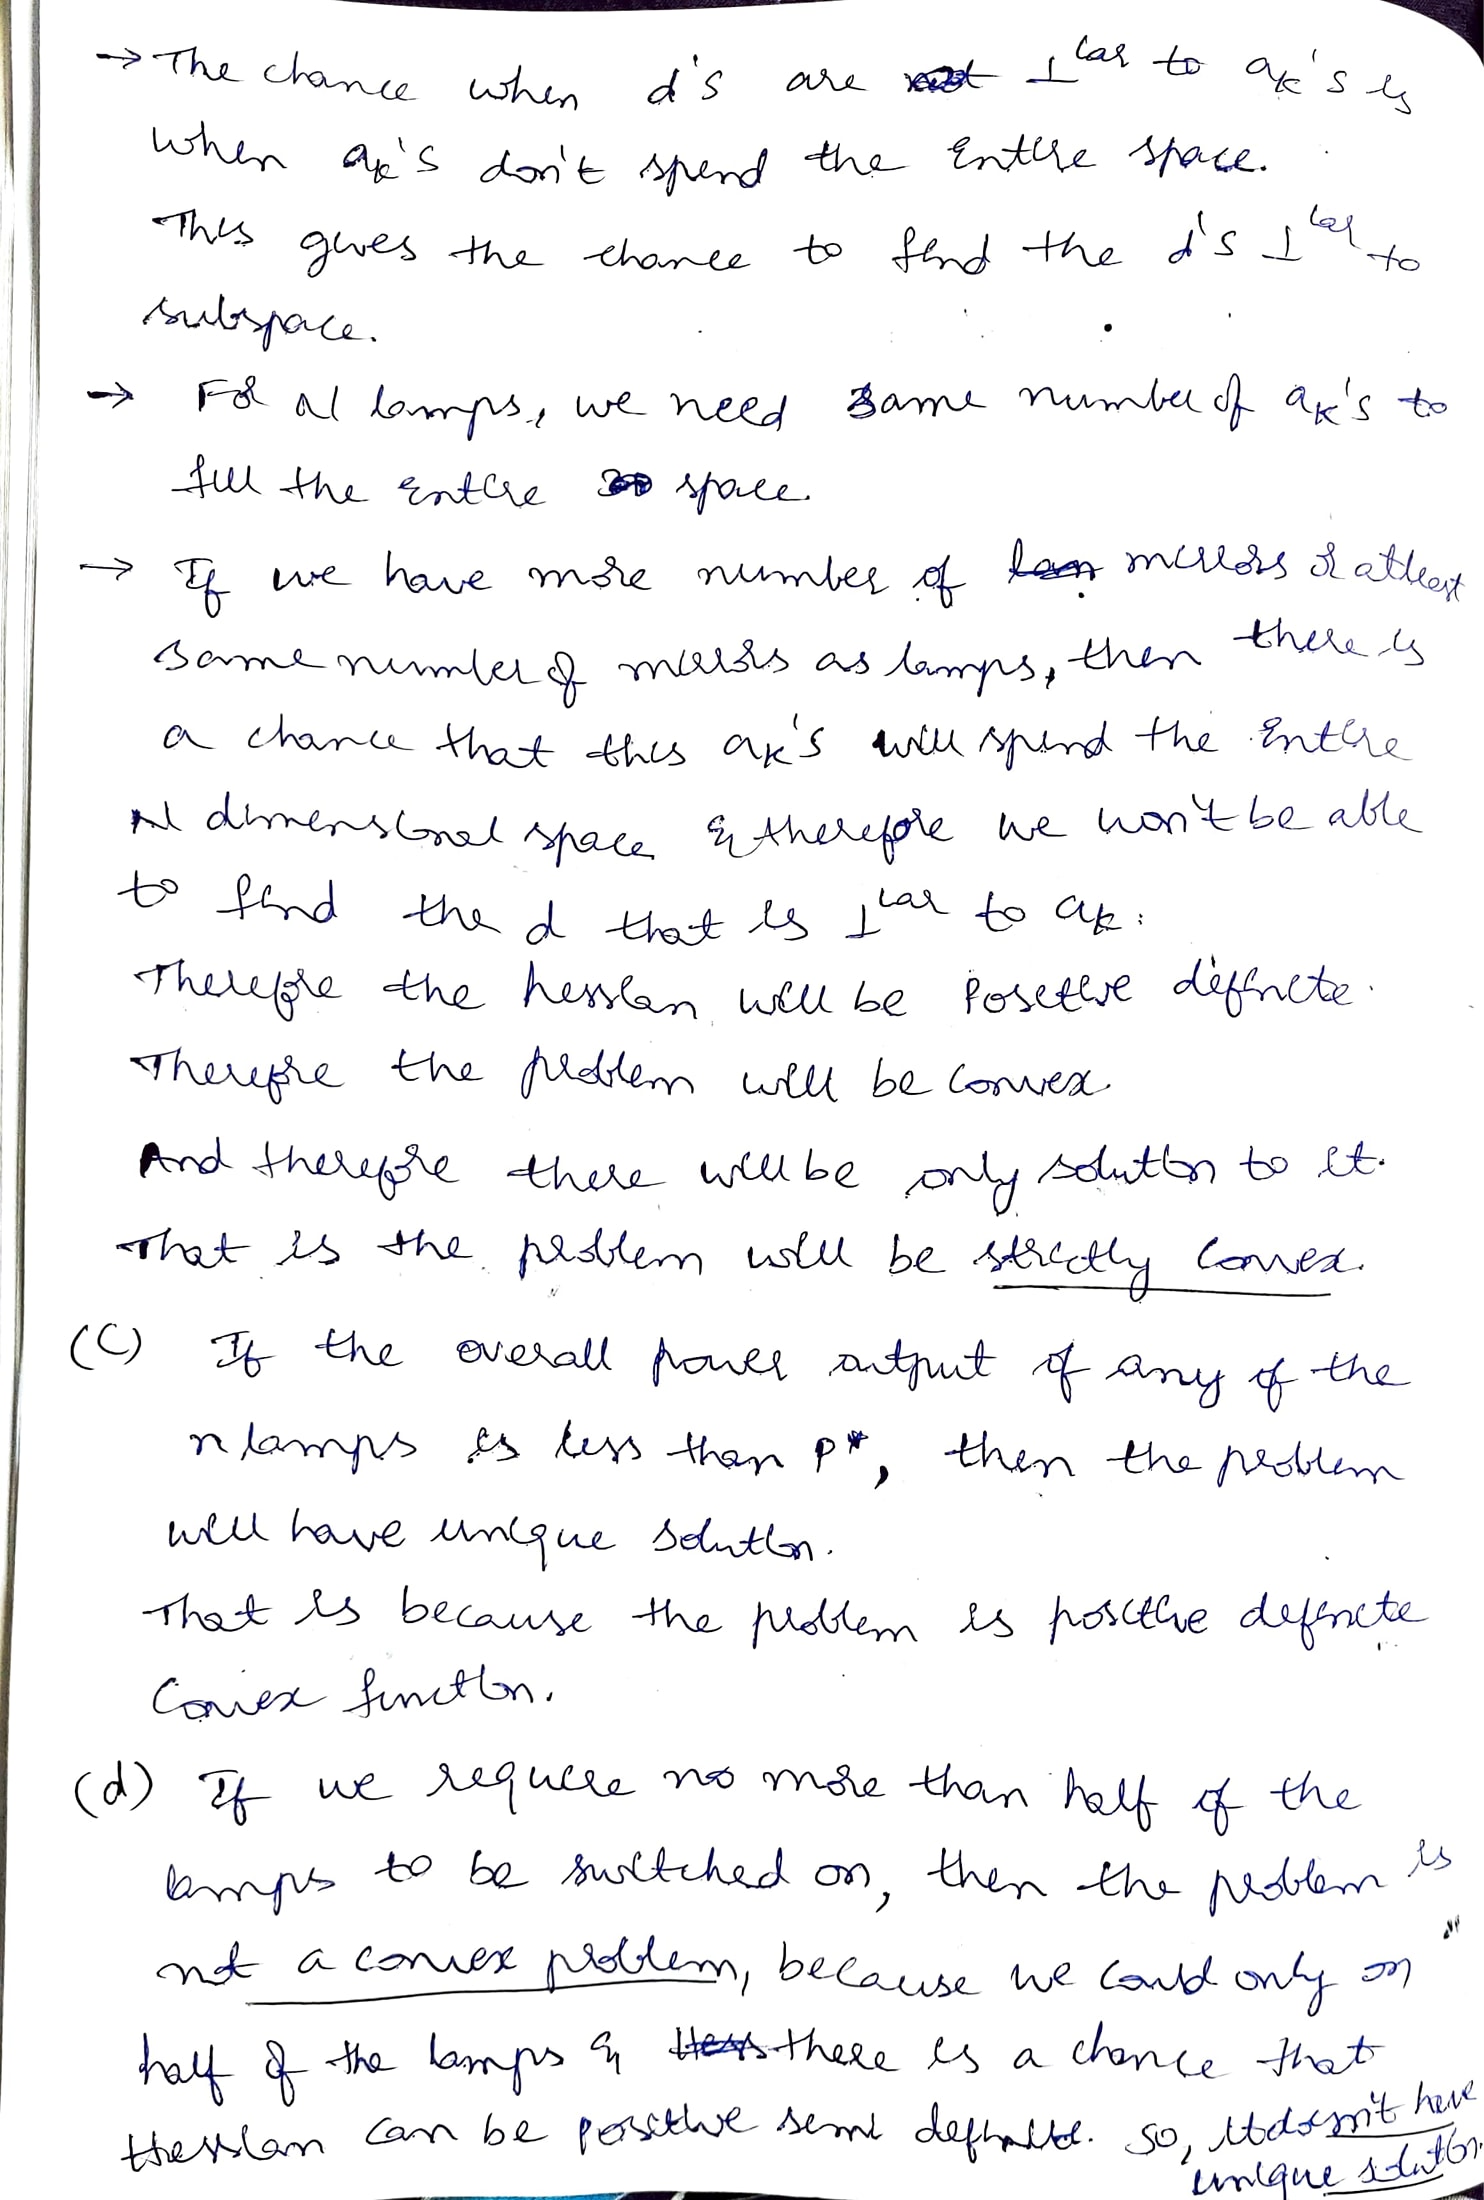 → The chance when d's are ⊥lar to ak's is
when ak's don't spend the entire space.
This gives the chance to find the d's ⊥lar to
subspace.
→ For N lamps, we need same number of ak's to
fill the entire space.
→ If we have more number of mirrors or atleast
same number of mirrors as lamps, then there is
a chance that this ak's will spend the entire
N dimensional space & therefore we won't be able
to find the d that is ⊥lar to ak.
Therefore the hessian will be Positive definite.
Therefore the problem will be convex.
And therefore there will be only solution to it.
That is the problem will be strictly convex.
(C) If the overall power output of any of the
n lamps is less than p*, then the problem
will have unique solution.
That is because the problem is positive definite
Convex function.
(d) If we require no more than half of the
lamps to be switched on, then the problem is
not a convex problem, because we could only on
half of the lamps & there is a chance that
Hessian can be positive semi definite. So, it doesn't have
unique solution